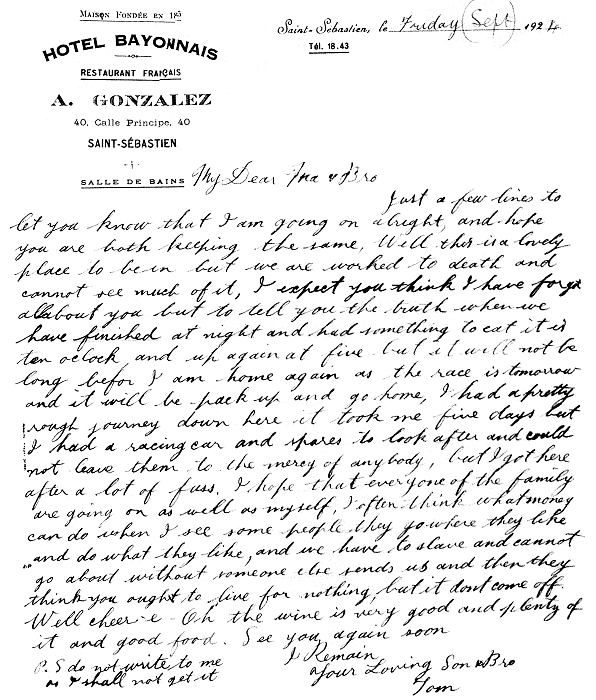 MAISON FONDÉE EN 185
HOTEL BAYONNAIS
RESTAURANT FRANÇAIS
A. GONZALEZ
40, Calle Principe, 40
SAINT-SÉBASTIEN
SALLE DE BAINS
Saint-Sébastien, le Friday (Sept) 1924
Tél. 18.43
My Dear Ma & Bro
Just a few lines to
let you know that I am going on alright, and hope
you are both keeping the same, Well this is a lovely
place to be in but we are worked to death and
cannot see much of it, I expect you think I have forgot
all about you but to tell you the truth when we
have finished at night and had something to eat it is
ten oclock and up again at five but it will not be
long befor I am home again as the race is tomorrow
and it will be pack up and go home, I had a pretty
rough journey down here it took me five days but
I had a racing car and spares to look after and could
not leave them to the mercy of anybody, but I got here
after a lot of fuss. I hope that everyone of the family
are going on as well as myself, I often think what money
can do when I see some people they go where they like
and do what they like, and we have to slave and cannot
go about without someone else sends us and then they
think you ought to live for nothing, but it dont come off.
Well cheer-e- Oh the wine is very good and plenty of
it and good food. See you again soon
I Remain
Your Loving Son & Bro
Tom
P.S do not write to me
as I shall not get it